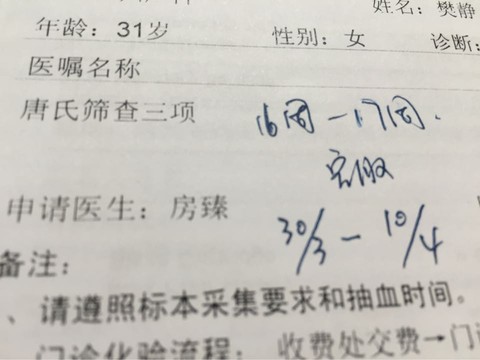 姓名：樊静
年龄：31岁 性别：女 诊断：
医嘱名称
唐氏筛查三项 16周－17周.
空腹
申请医生：房臻 30/3－10/4
备注：
、请遵照标本采集要求和抽血时间。
门诊化验流程： 收费处交费→门